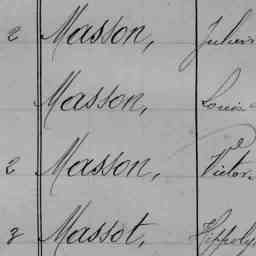 2 Masson, Julien
Masson, Louis
2 Masson, Victor
3 Massot, Hippoly